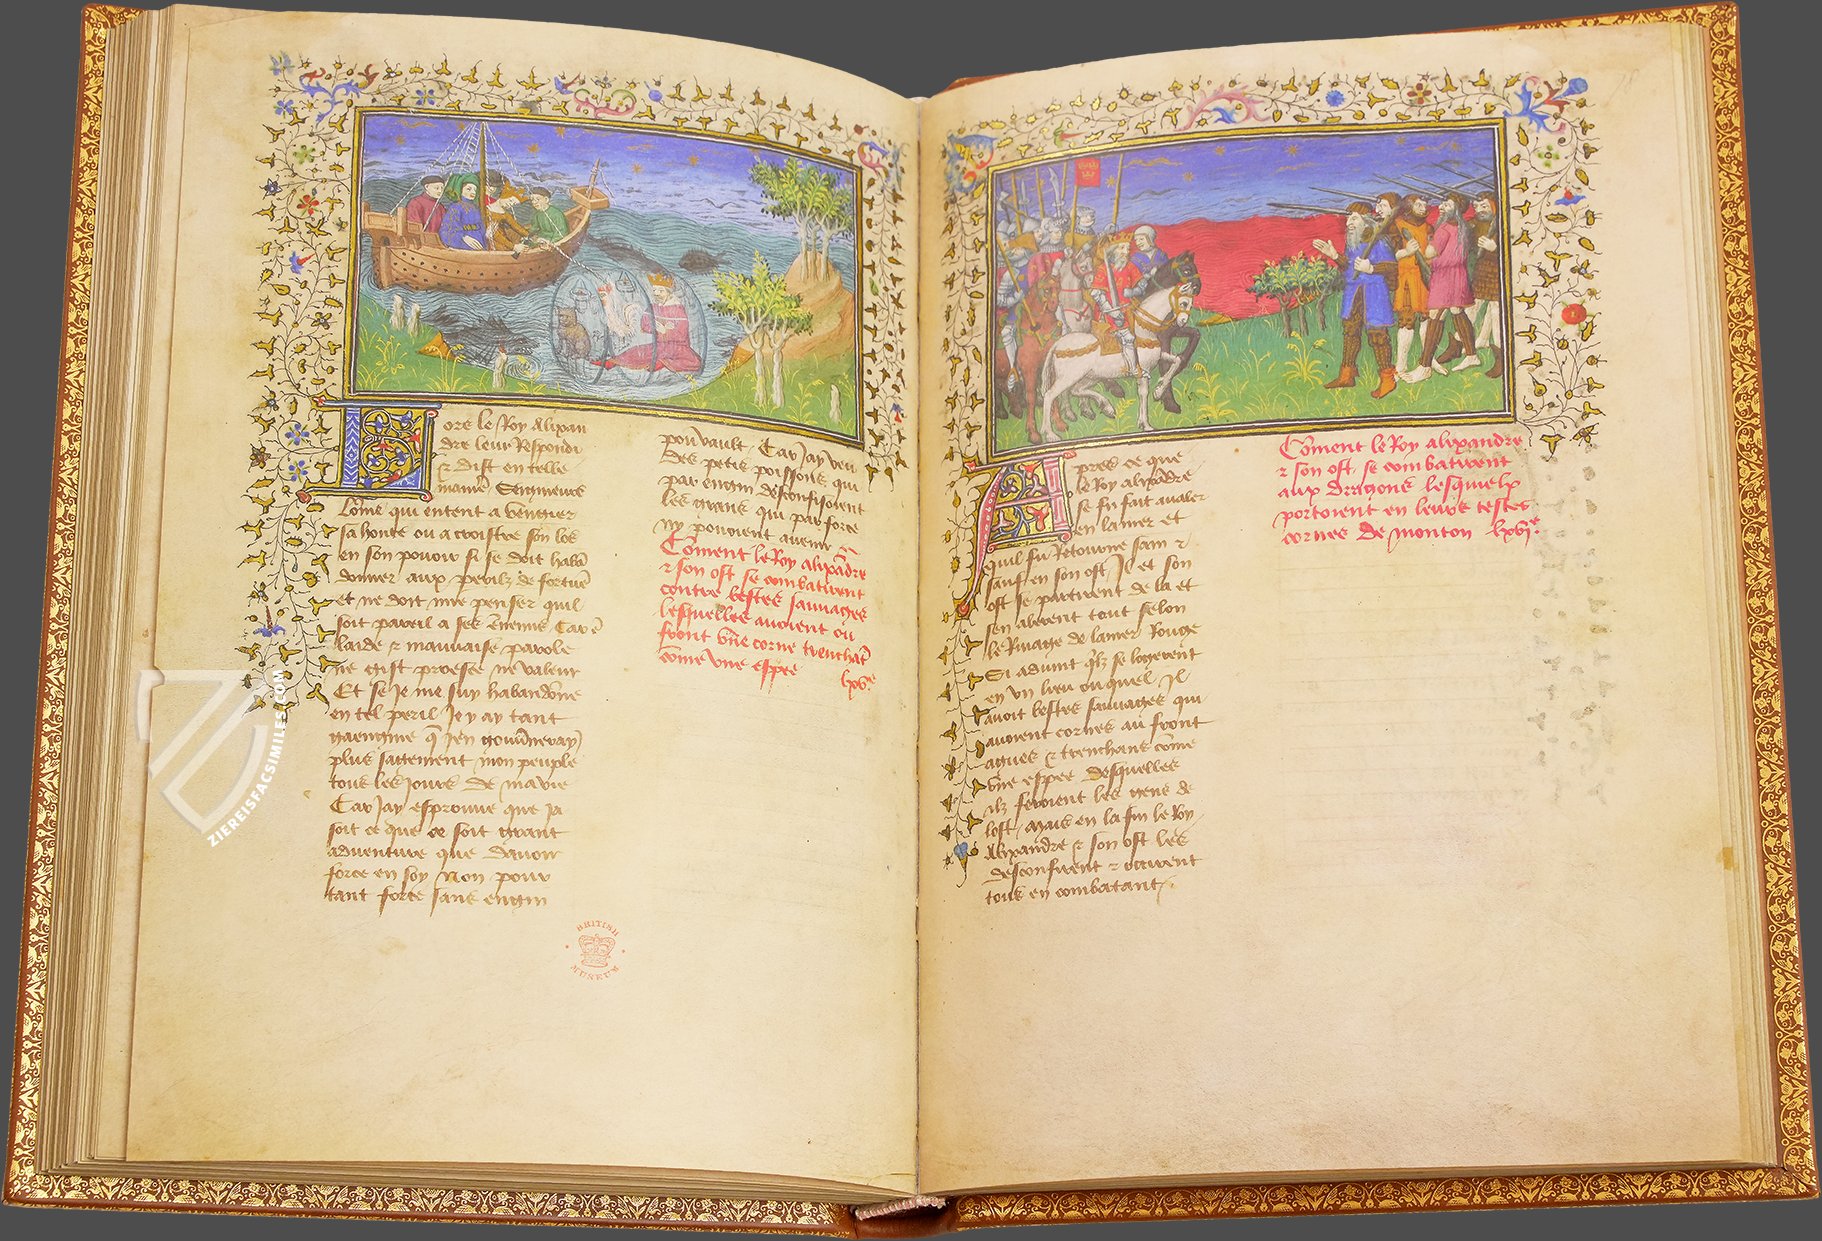 Lors le Roy Alixan
dre leur Respondi
⁊ dist en telle
maniē Seigneurs
Lōme qui entent a vengier
sa honte ou acroistre son los
en son pouoir si se doit habā
donner aux perilz de fortuē
et ne doit mie penser quil
soit pareil a ses Ennemis Car
laide ⁊ mauuaise parole
ne gist proesce ne valeur
Et se Je me suy habandōne
en tel peril Jey ay tant
gaengnie q̄ Jen gouūneray
plus saitement mon peuple
tous les Jours de ma vie
Car Jay esprouue que Ja
soit ce que ce soit grant
aduenture que dauoir
force en soy Non pour
tant force sans engin
pou vault. Car Jay veu
des petis poissons qui
par engin desconfisoient
les grans qui par force
ny pouoient auenir
Cōment le Roy alixādre
⁊ son ost se combatirent
contre bestes sauuages
lesquelles auoient ou
front vne corne trenchāt
cōme vne espee lxv.e
BRITISH
MUSEUM
Apres ce que
le Roy alixādre
se fu fait aualer
en la mer et
quil fu Retourne sain ⁊
sauf en son ost Il et son
ost se partirent de la et
sen alerent tout selon
le Riuage de la mer Rouge
Si aduint q̄lz se logerent
en vn lieu ou quel Il
auoit bestes sauuages qui
auoient cornes au front
agues ⁊ trenchans cōme
vne espee desquelles
ilz feroient les gens de
lost. Mais en la fin le Roy
Alixandre ⁊ son ost les
desconfirent ⁊ occirent
tous en combatant.
Cōment le Roy alixandre
⁊ son ost se combatirent
aux dragons lesquelx
portoient en leurs testes
cornes de mouton lxvi.e
ZIEREISFACSIMILES.COM